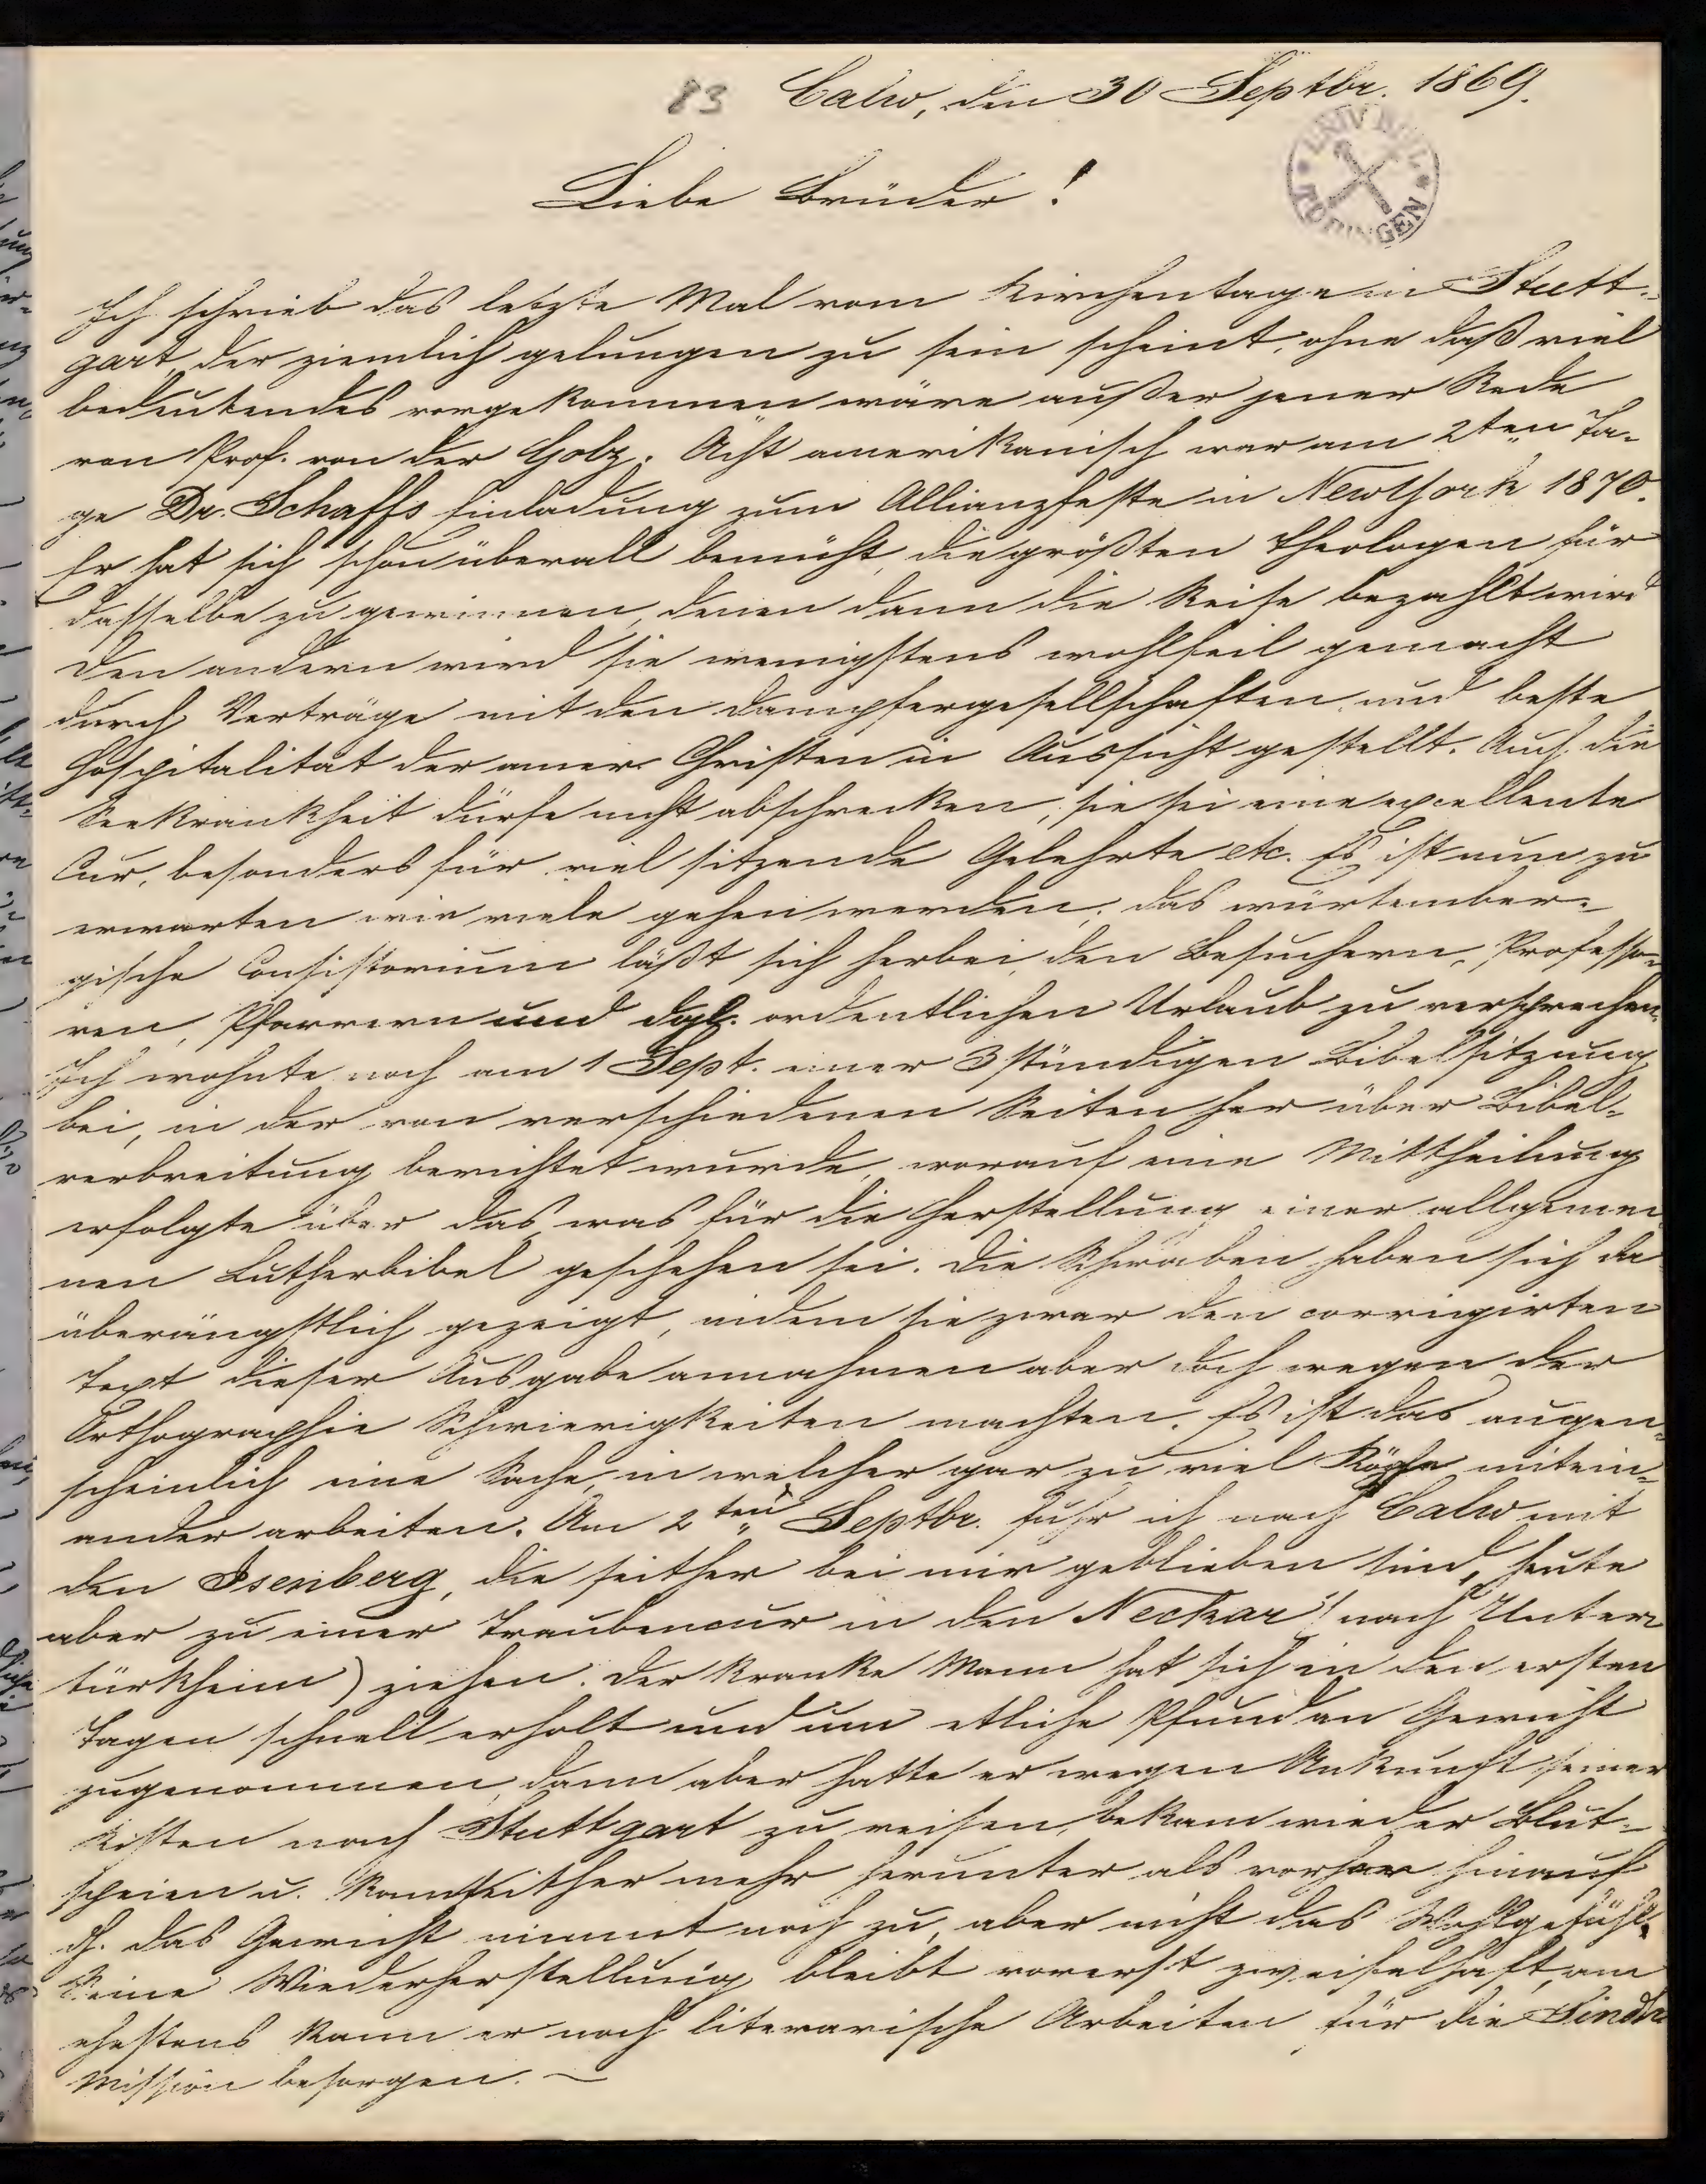 83 Calw, den 30 Septbr. 1869.
UNIV. BIBL.
TÜBINGEN
Liebe Brüder!
Ich schrieb das letzte Mal vom Kirchentage in Stutt-
gart, der ziemlich gelungen zu sein scheint, ohne daß viel
bedeutendes vorgekommen wäre außer jener Rede
von Prof. von der Golz. Ächt amerikanisch war am 2ten Ta-
ge Dr. Schaffs Einladung zum Allianzfeste in NewYork 1870.
Er hat sich schon überall bemüht, die größten Theologen für
dasselbe zu gewinnen, denen dann die Reise bezahlt wird
den andern wird sie wenigstens wohlfeil gemacht
durch Verträge mit den Dampfergesellschaften, und beste
Hospitalität der amer. Christen in Aussicht gestellt. Auch die
Seekrankheit dürfe nicht abschrecken, sie sei eine excellente
Cur, besonders für viel sitzende Gelehrte etc. Es ist nun zu
erwarten wie viele gehen werden; das würtember-
gische Consistorium läßt sich herbei, den Besuchern, Professo-
ren, Pfarrern und dgl. ordentlichen Urlaub zu versprechen.
Ich wohnte noch am 1 Sept. einer 3 stündigen Bibelsitzung
bei, in der von verschiedenen Seiten her über Bibel-
verbreitung berichtet wurde, worauf eine Mittheilung
erfolgte über das was für die Herstellung einer allgemei
nen Lutherbibel geschehen sei. Die Schwaben haben sich da
überängstlich gezeigt, indem sie zwar den corrigirten
Text dieser Ausgabe annahmen aber doch wegen der
Orthographie Schwierigkeiten machten. Es ist das augen-
scheinlich eine Sache, in welcher gar zu viel Köpfe mitein-
ander arbeiten. Am 2ten Septbr. fuhr ich nach Calw mit
den Isenberg, die seither bei mir geblieben sind, heute
aber zu einer Traubencur in den Neckar (nach Unter
türkheim) ziehen. Der kranke Mann hat sich in den ersten
Tagen schnell erholt und um etliche Pfund an Gewicht
zugenommen, dann aber hatte er wegen Ankunft seiner
Kisten nach Stuttgart zu reisen, bekam wieder Blut-
speien u. kam seither mehr herunter als vorher hinauf
dh. das Gewicht nimmt noch zu, aber nicht das Wohlgefühl.
Seine Wiederherstellung bleibt vorerst zweifelhaft, am
ehestens kann er noch literarische Arbeiten für die Sindh
Mission besorgen. —